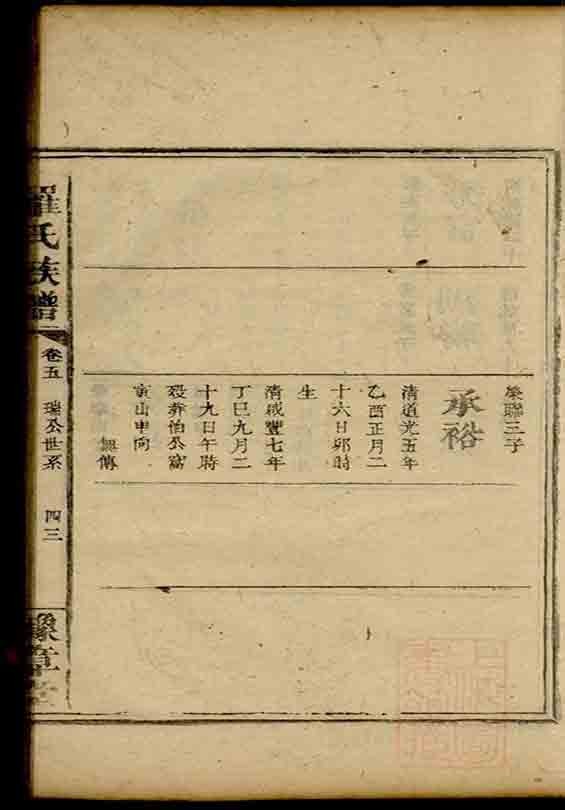 榮聯三子
承裕
清道光五年
乙酉正月二
十六日卯時
生
清咸豐七年
丁巳九月二
十九日午時
歿葬伯公窩
寅山申向
無傳
羅氏族譜
卷五
瑞公世系
四三
豫章堂